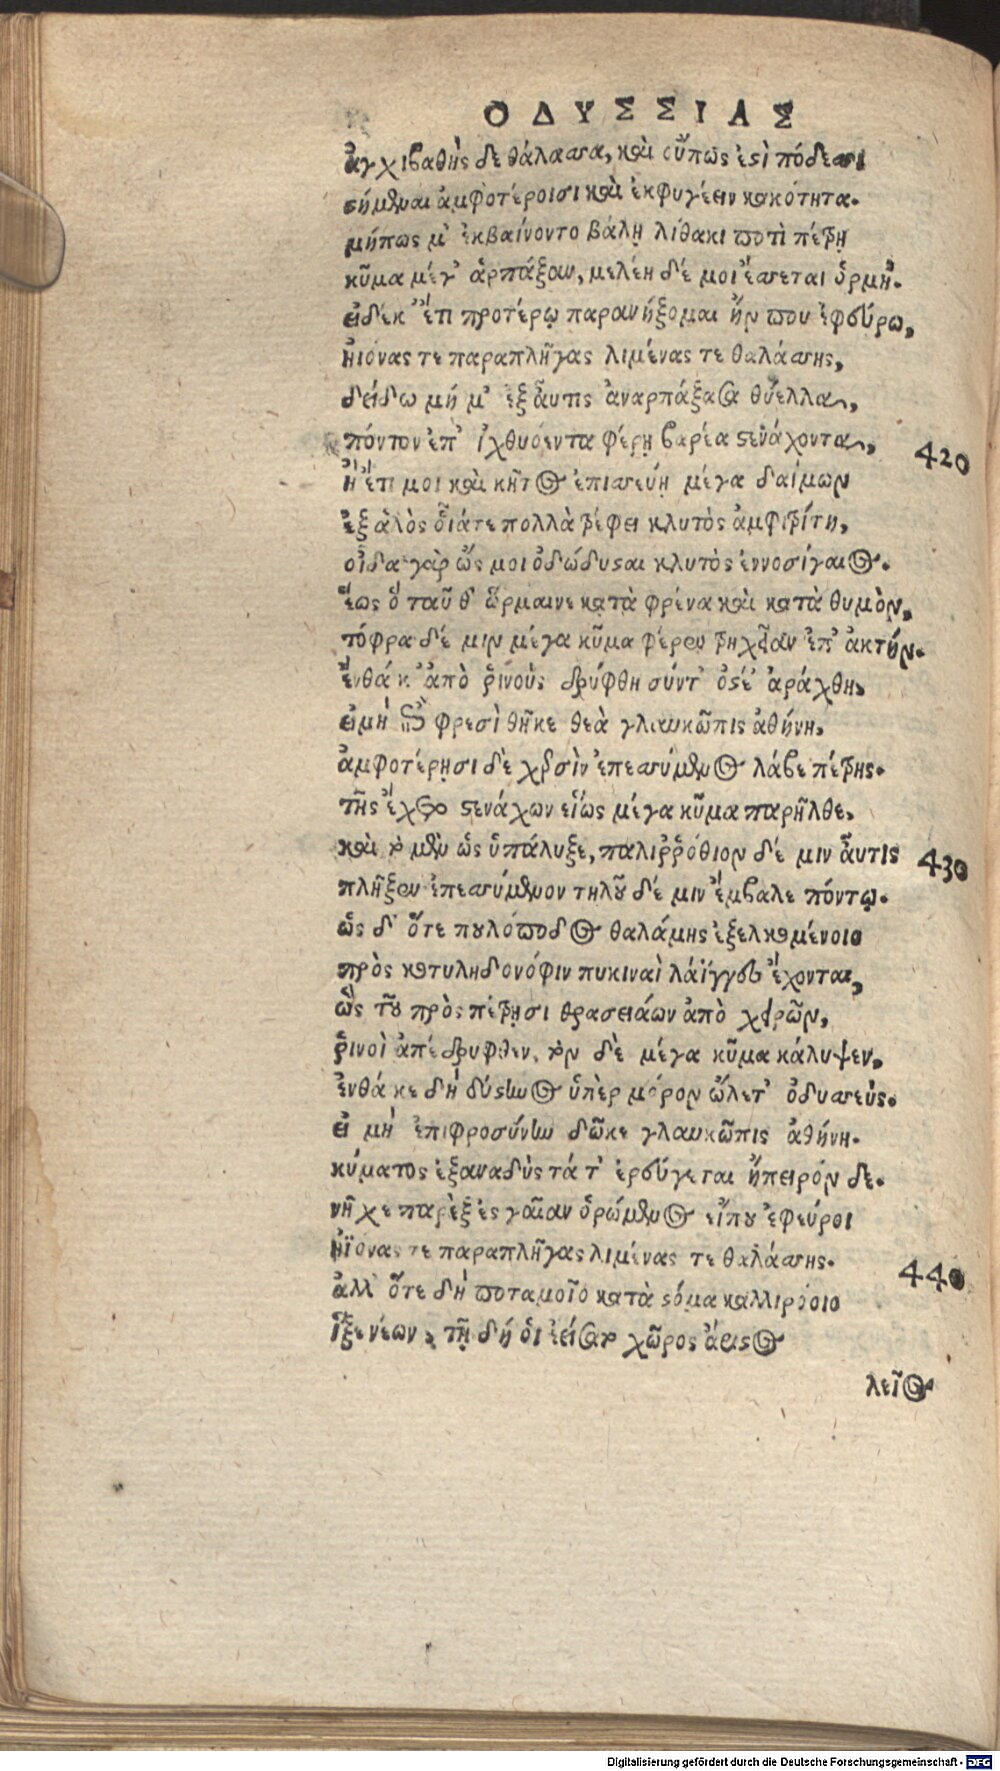 ΟΔΥΣΣΙΑΣ
ἀγχιβαθὴς δε θάλασσα, καὶ οὔπως ἐστὶ πόδεσσι
στήμεναι ἀμφοτέροισι καὶ ἐκφυγέειν κακότητα.
μήπως μ' ἐκβαίνοντο βάλῃ λίθακι ποτὶ πέτρῃ
κῦμα μέγ' ἁρπάξαν, μελέη δέ μοι ἔσσεται ὁρμή.
εἰ δέκ' ἔτι προτέρω παρανήξομαι ἤν που ἐφεύρω,
ἠιόνας τε παραπλῆγας λιμένας τε θαλάσσης,
δείδω μή μ' ἐξαῦτις ἀναρπάξασα θύελλα,
πόντον ἐπ' ἰχθυόεντα φέρῃ βαρέα στενάχοντα, 420
ἠὲ ἔτι μοι καὶ κῆτος ἐπισσεύῃ μέγα δαίμων
ἐξ ἁλὸς οἷάτε πολλὰ τρέφει κλυτὸς ἀμφιτρίτη,
οἶδα γὰρ ὥς μοι ὀδώδυσται κλυτὸς ἐννοσίγαιος.
ἕως ὃ ταῦθ' ὥρμαινε κατὰ φρένα καὶ κατὰ θυμὸν,
τόφρα δέ μιν μέγα κῦμα φέρεν τρηχεῖαν ἐπ' ἀκτήν.
ἔνθά κ' ἀπὸ ῥινοὺς δρύφθη σύντ' ὀστέ' ἀράχθη,
εἰ μὴ ἐπὶ φρεσὶ θῆκε θεὰ γλαυκῶπις ἀθήνη,
ἀμφοτέρῃσι δὲ χερσὶν ἐπεσσύμενος λάβε πέτρης.
τῆς ἔχετο στενάχων εἵως μέγα κῦμα παρῆλθε,
καὶ τὸ μὲν ὣς ὑπάλυξε, παλιῤῥόθιον δέ μιν αὖτις 430
πλῆξεν ἐπεσσύμενον τηλοῦ δέ μιν ἔμβαλε πόντῳ.
ὡς δ' ὅτε πουλύποδος θαλάμης ἐξελκομένοιο
πρὸς κοτυληδονόφιν πυκιναὶ λάϊγγες ἔχονται,
ὣς τοῦ πρὸς πέτρῃσι θρασειάων ἀπὸ χειρῶν,
ῥινοὶ ἀπέδρυφθεν, τὸν δὲ μέγα κῦμα κάλυψεν,
ἔνθά κε δὴ δύστηνος ὑπὲρ μόρον ὤλετ' ὀδυσσεύς.
εἰ μὴ ἐπιφροσύνην δῶκε γλαυκῶπις ἀθήνη.
κύματος ἐξαναδὺς τά τ' ἐρεύγεται ἤπειρόν δε.
νῆχε παρὲξ ἐς γαῖαν ὁρώμενος εἴπου ἐφεύροι
ἠϊόνας τε παραπλῆγας λιμένας τε θαλάσσης. 440
ἀλλ' ὅτε δὴ ποταμοῖο κατὰ στόμα καλλιρόοιο
ἷξε νέων, τῇ δή οἱ ἐείσατο χῶρος ἄριστος
λεῖος